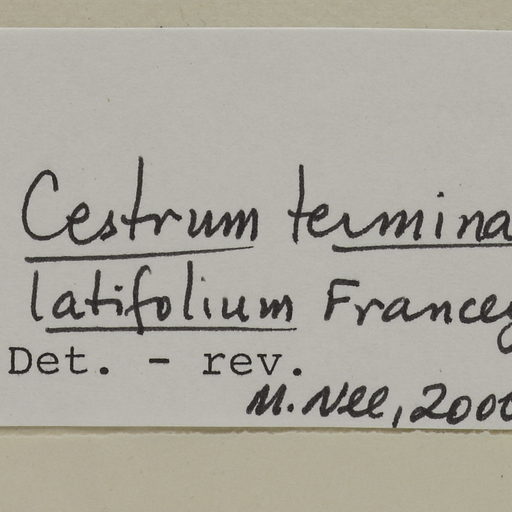 Cestrum termina
latifolium Francey
Det. - rev.
M. Nee, 2000